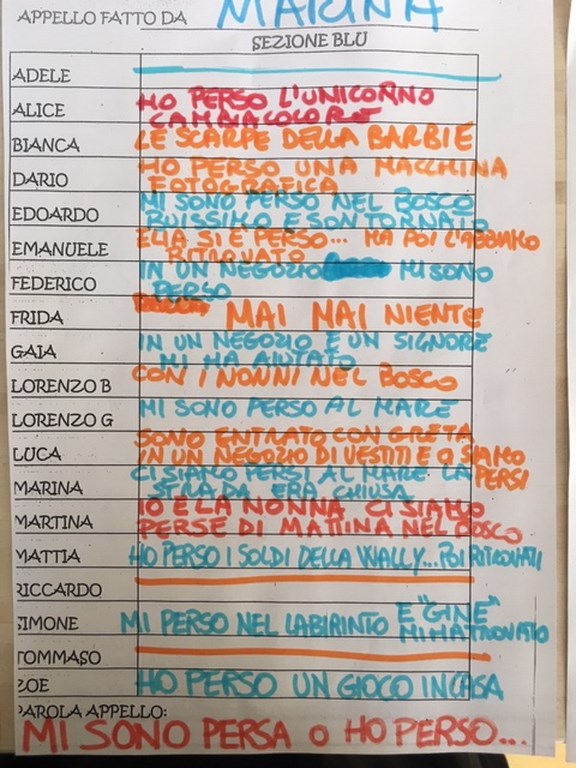 APPELLO FATTO DA MARINA
SEZIONE BLU
ADELE
ALICE HO PERSO L'UNICORNO
CAMBIACOLORE
BIANCA LE SCARPE DELLA BARBIE
DARIO HO PERSO UNA MACCHINA
FOTOGRAFICA
EDOARDO MI SONO PERSO NEL BOSCO
BUISSIMO E SON TORNATO
EMANUELE ELIA SI È PERSO... MA POI L'ABBIAMO
RITROVATO
FEDERICO IN UN NEGOZIO MI SONO
PERSO
FRIDA MAI MAI NIENTE
GAIA IN UN NEGOZIO E UN SIGNORE
MI HA AIUTATO
LORENZO B CON I NONNI NEL BOSCO
LORENZO G MI SONO PERSO AL MARE
LUCA SONO ENTRATO CON GRETA
IN UN NEGOZIO DI VESTITI E CI SIAMO
PERSI
MARINA CI SIAMO PERSI AL MARE LA
STRADA ERA CHIUSA
MARTINA IO E LA NONNA CI SIAMO
PERSE DI MATTINA NEL BOSCO
MATTIA HO PERSO I SOLDI DELLA WALLY... POI RITROVATI
RICCARDO
SIMONE MI PERSO NEL LABIRINTO E "GINE"
MI HA TROVATO
TOMMASO
ZOE HO PERSO UN GIOCO IN CASA
PAROLA APPELLO:
MI SONO PERSA O HO PERSO...